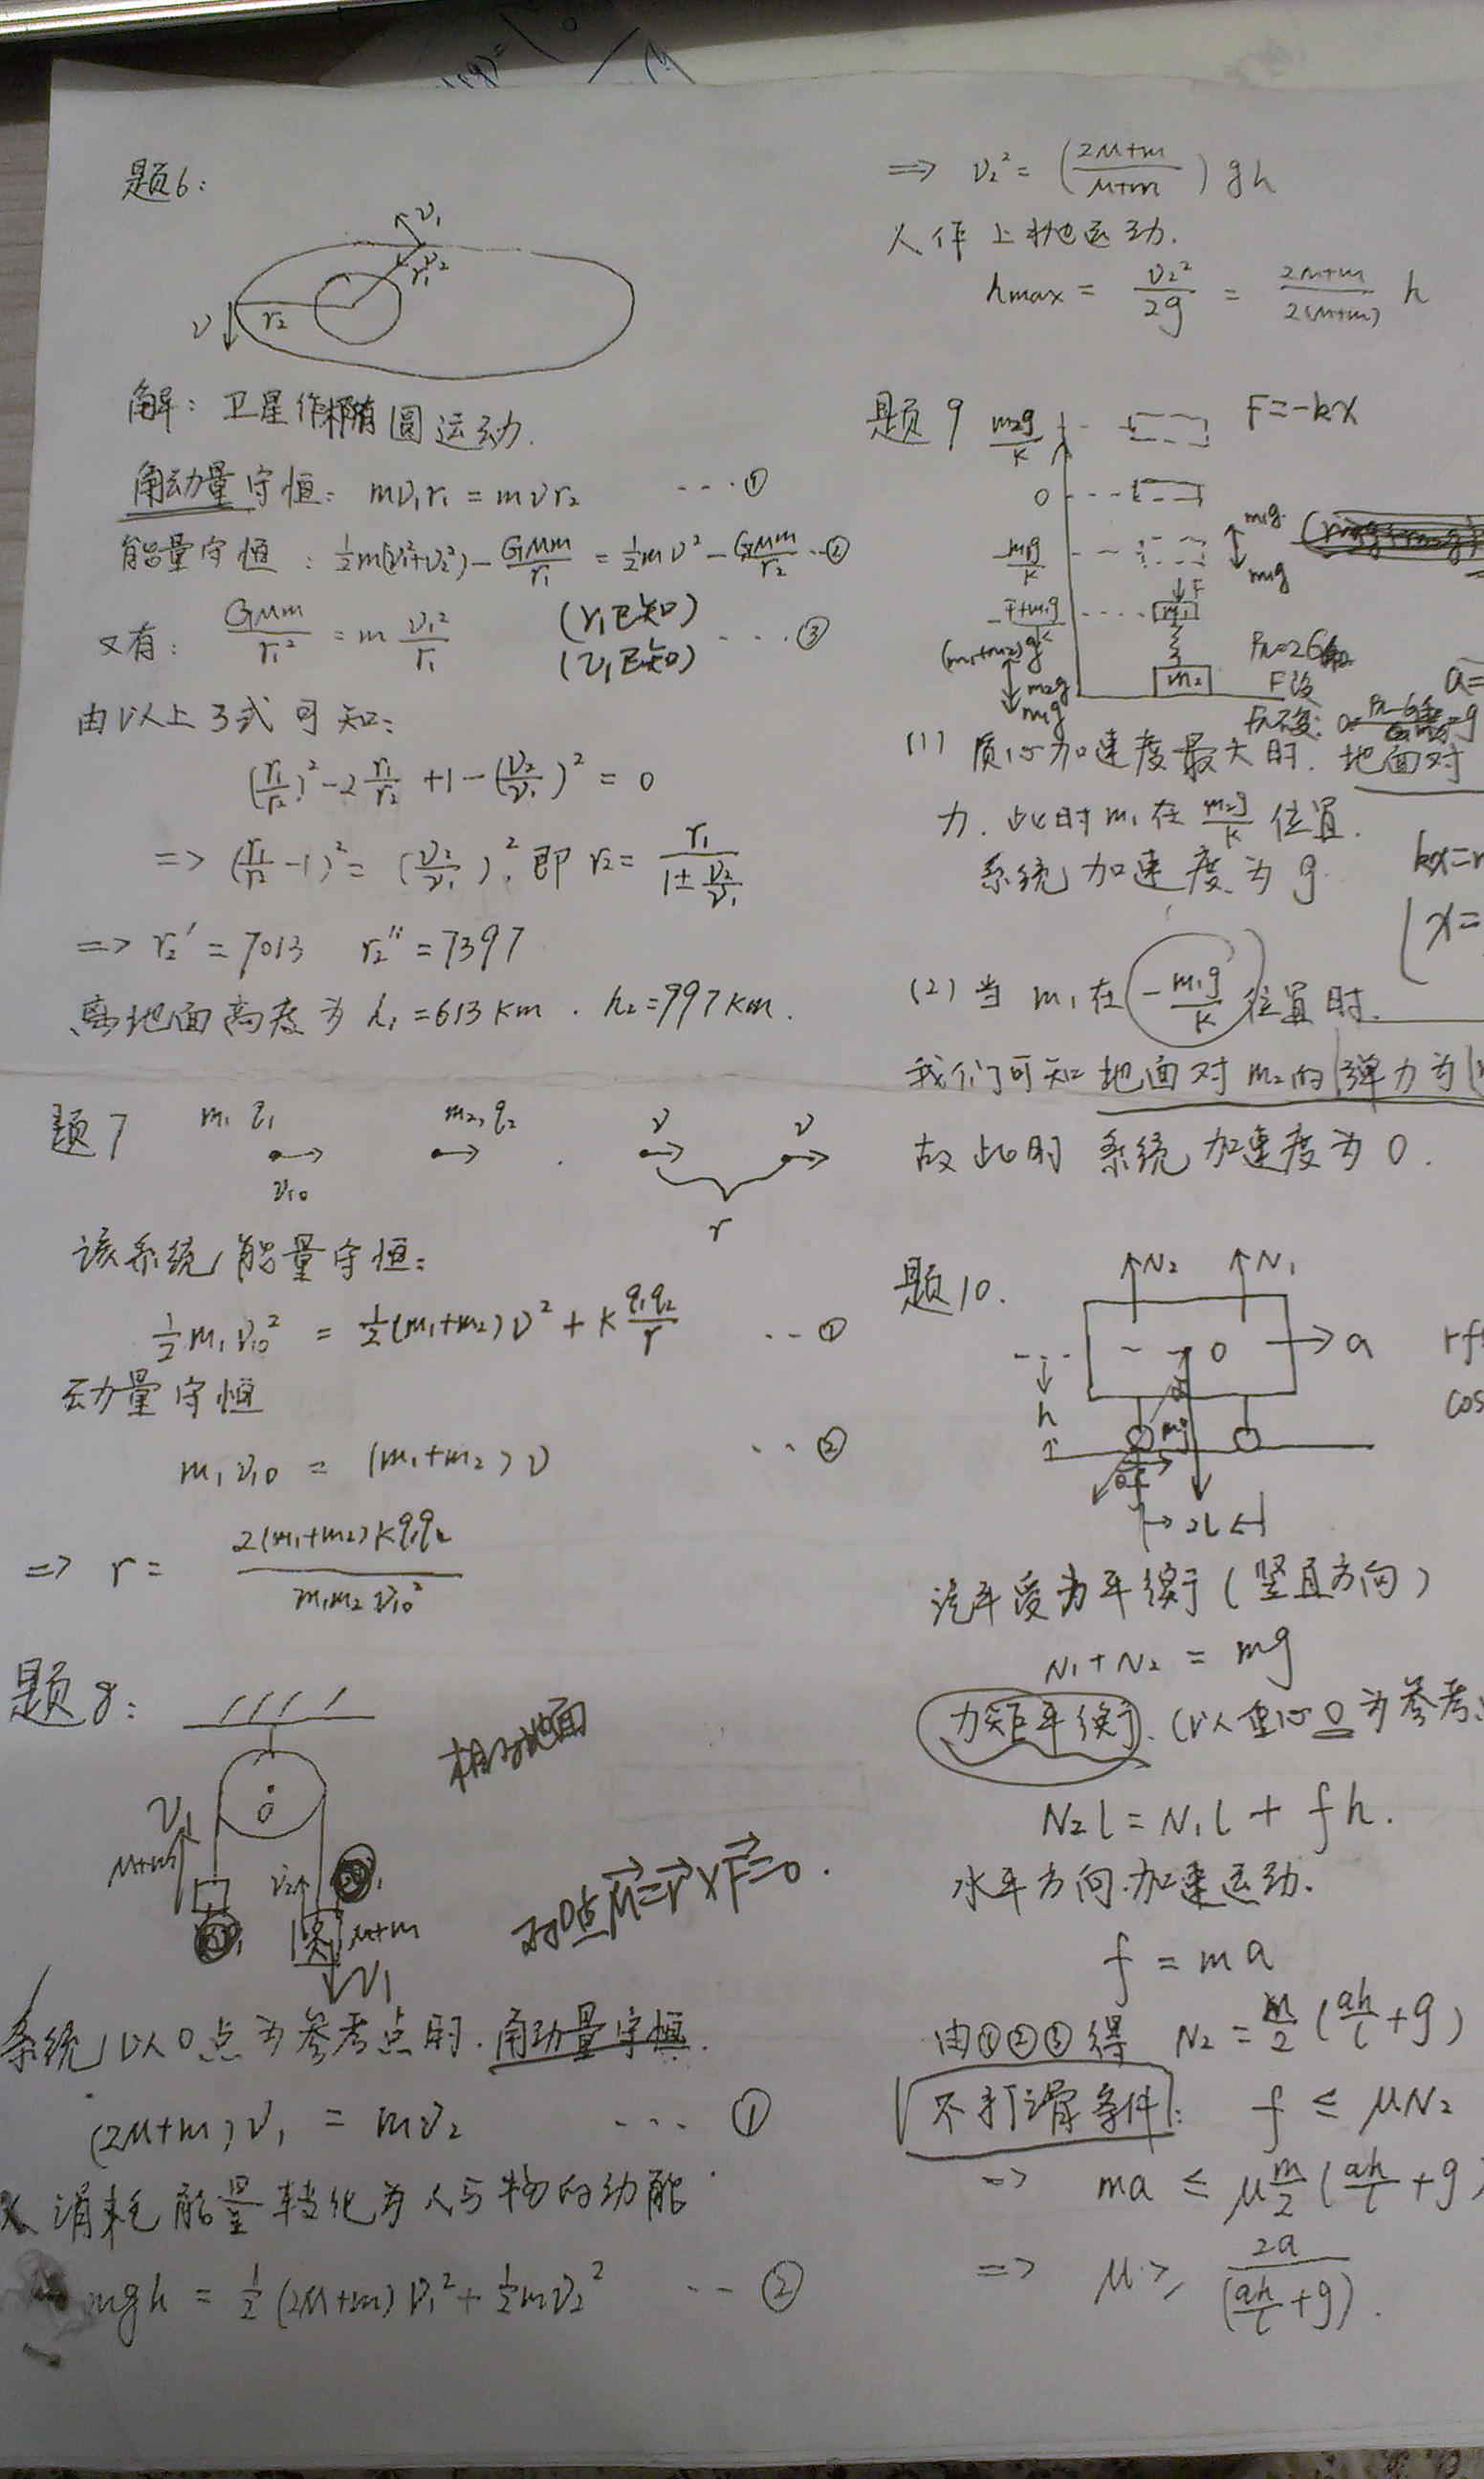 题6:
v₁
v₂
r₁
r₂
v
解: 卫星作椭圆运动.
角动量守恒: mv₁r₁ = mvr₂ ---①
能量守恒: ½m(v₁²+v₂²) - GMm/r₁ = ½mv² - GMm/r₂ --②
又有: GMm/r₁² = m v₁²/r₁ (r₁已知) (v₁已知) ----③
由以上3式可知:
(r₁/r₂)² - 2 r₁/r₂ + 1 - (v₂/v₁)² = 0
=> (r₁/r₂ - 1)² = (v₂/v₁)², 即 r₂ = r₁/(1 ± v₂/v₁)
=> r₂' = 7013 r₂'' = 7397
离地面高度为 h₁=613km. h₂=997km.
题7 m₁ q₁ m₂, q₂ v v
v₁₀ r
该系统能量守恒:
½m₁v₁₀² = ½(m₁+m₂)v² + k q₁q₂/r --①
动量守恒
m₁v₁₀ = (m₁+m₂)v --②
=> r = 2(m₁+m₂)kq₁q₂ / m₁m₂v₁₀²
题8:
相对地面
v₁
M+m
o
v₂
M+m
v₁
对O点M=r×F=0.
系统以O点为参考点时.角动量守恒.
(2M+m)v₁ = mv₂ ---- ①
人消耗能量转化为人与物的动能
mgh = ½(2M+m)v₁² + ½mv₂² --- ②
=> v₂² = ((2M+m)/(M+m)) gh
人作上抛运动.
hmax = v₂²/2g = (2M+m)/2(M+m) h
题9 m₂g/k F=-kx
0
-m₁g/k m₁g m₁g
F
m₁
(m₁+m₂)g
m₂g
m₁g
m₂
(1) 质心加速度最大时. 地面对
力. 此时m₁在 m₂g/k 位置.
系统加速度为g.
(2) 当 m₁ 在 -m₁g/k 位置时.
我们可知地面对m₂的弹力为
故此时系统加速度为0.
题10.
N₂ N₁
O a
h
mg
f
2l
汽车受力平衡(竖直方向)
N₁+N₂ = mg
力矩平衡. (以重心O为参考
N₂l = N₁l + fh.
水平方向.加速运动.
f = ma
由①②③得 N₂ = m/2 (ah/l + g)
不打滑条件: f ≤ μN₂
=> ma ≤ μ m/2 (ah/l + g)
=> μ ≥ 2a/(ah/l + g).